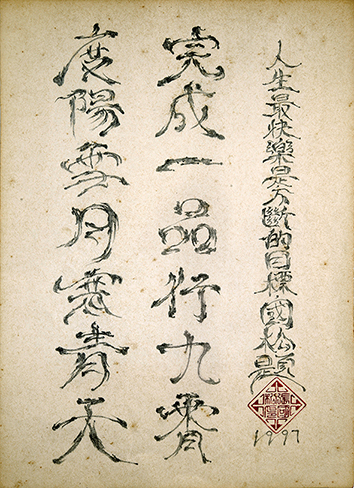 人生最快樂是不斷的目標 國松題
1997
完成一品行九霄
陽月寒青天